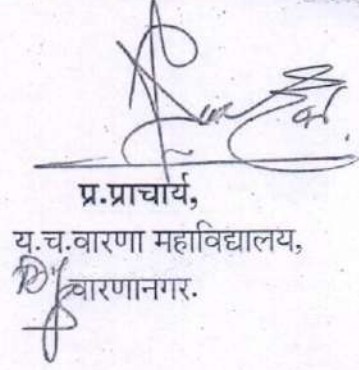 प्र.प्राचार्य,
य.च.वारणा महाविद्यालय,
वारणानगर.